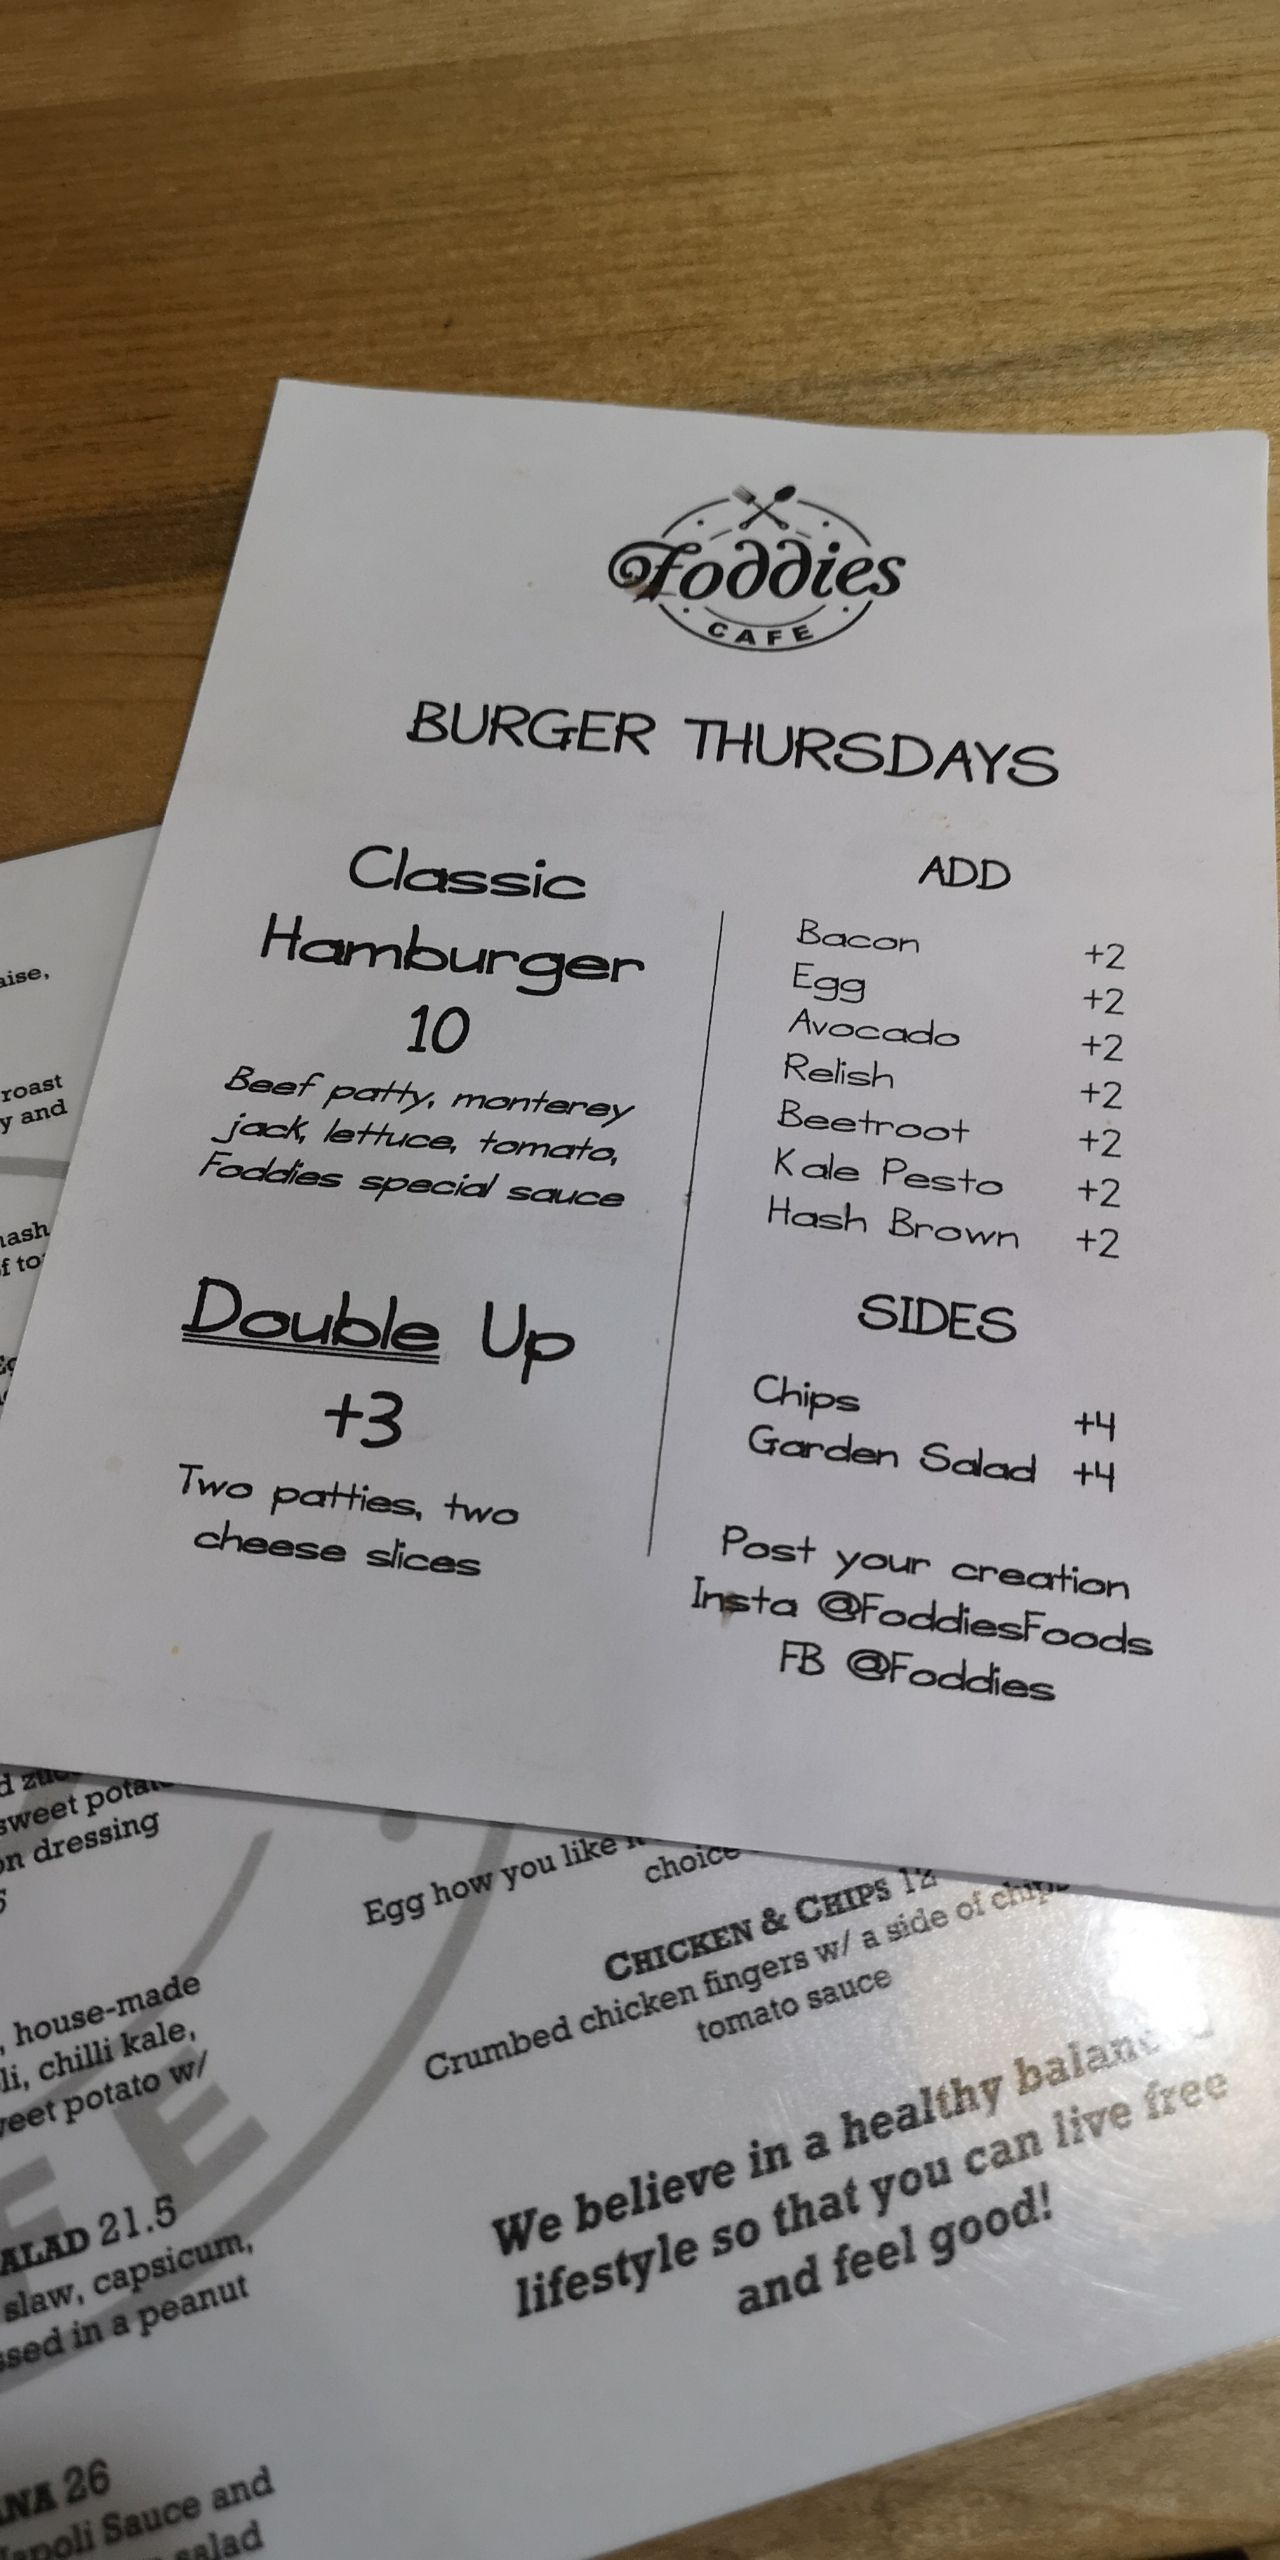 Foddies
CAFE
BURGER THURSDAYS
Classic
Hamburger
10
Beef patty, monterey
jack, lettuce, tomato,
Foddies special sauce
Double Up
+3
Two patties, two
cheese slices
ADD
Bacon +2
Egg +2
Avocado +2
Relish +2
Beetroot +2
Kale Pesto +2
Hash Brown +2
SIDES
Chips +4
Garden Salad +4
Post your creation
Insta @FoddiesFoods
FB @Foddies
aise,
roast
y and
hash
f to
sweet potato
on dressing
, house-made
li, chilli kale,
weet potato w/
ALAD 21.5
slaw, capsicum,
ssed in a peanut
ANA 26
Napoli Sauce and
salad
Egg how you like
choice
CHICKEN & CHIPS 12
Crumbed chicken fingers w/ a side of chips
tomato sauce
We believe in a healthy balanced
lifestyle so that you can live free
and feel good!